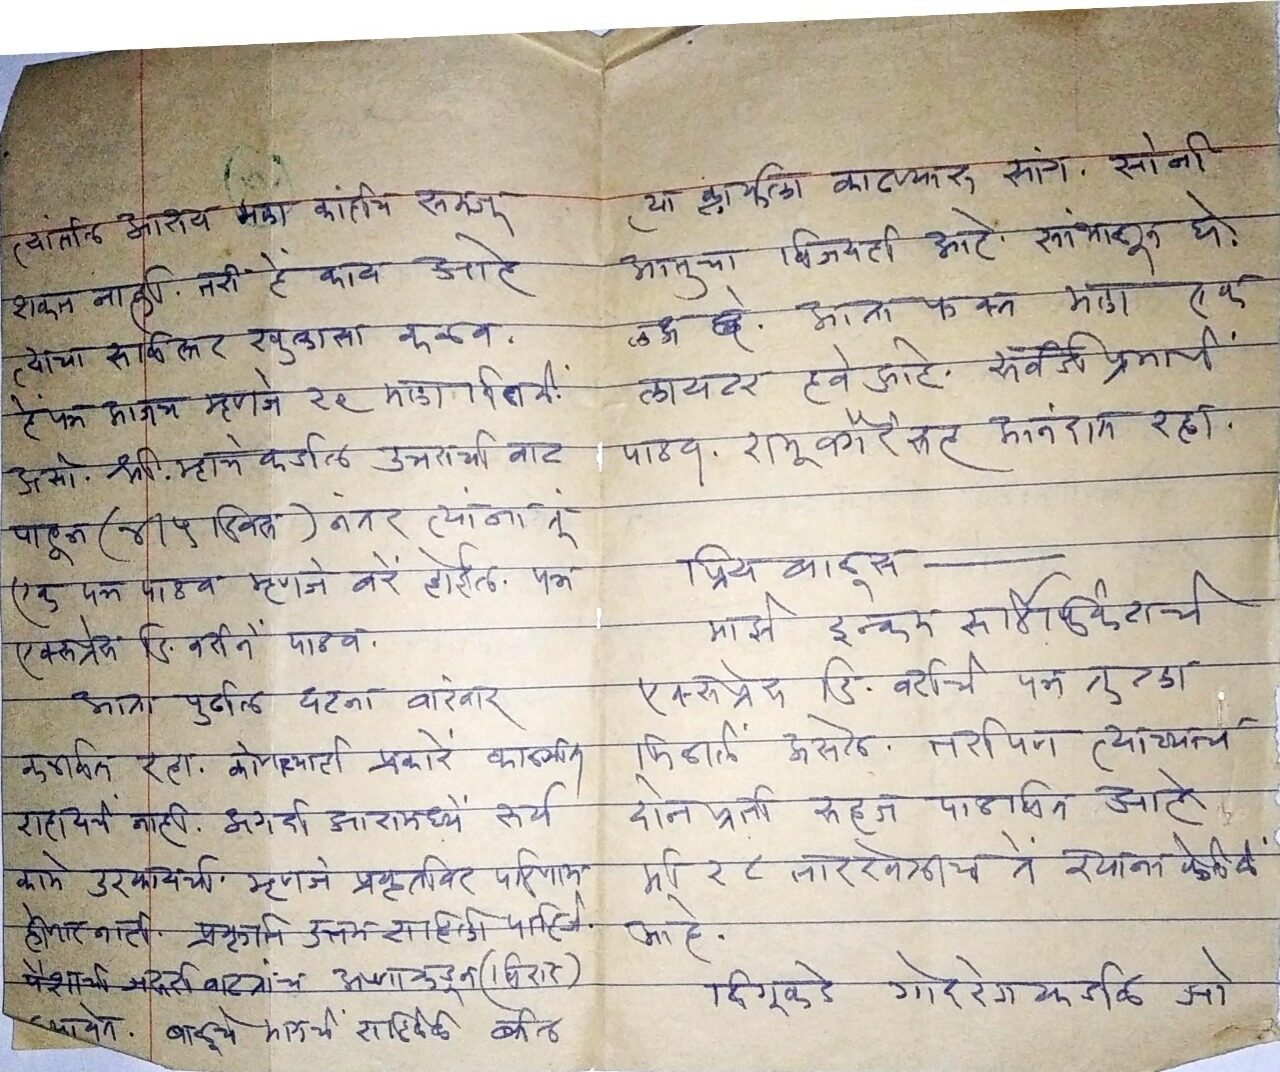 त्यांतील आशय मला कांहीच समजू
शकत नाही. तरी हें काय आहे
त्याचा सविस्तर खुलासा कळव.
हें पत्र आजच म्हणजे २९ मला मिळालें.
असो. श्री. म्हात्रे कडील उत्तराची वाट
पाहून (४।५ दिवस) नंतर त्यांना तूं
एक पत्र पाठव म्हणजे बरें होईल. पत्र
एक्सप्रेस डि. नर्सनें पाठव.
आता पुढील घटना वारंवार
कळवित रहा. कोणत्याही प्रकारें काळजीत
राहायचें नाही. अगदी आरामध्यें सर्व
कामे उरकायची. म्हणजे प्रकृतीवर परिणाम
होणार नाही. प्रकृति उत्तम राहिली पाहिजे.
पैशाची जरुरी वाटल्यास अण्णाकडून (विरार)
बाळूचे मागचें राहिलेले
त्या काटण्यास सांग. सोनी
आमुचा विजयही आहे. सांभाळून घे.
आता फक्त मला एक
लायटर हवे आहे. सवडी प्रमाणें
पाठव. रामू वगैरे सह आनंदात रहा.
प्रिय बाळूस ———
माझे इन्कम सर्टिफिकेटाचें
एक्सप्रेस डि. चें पत्र तुला
मिळालें असेल. तरीपण त्याच्याच
दोन प्रती सहज पाठवित आहे
मी २८ तारखेलाच तें रवाना केलेलें
आहे.
दिगूकडे गोदरेजकडील जो